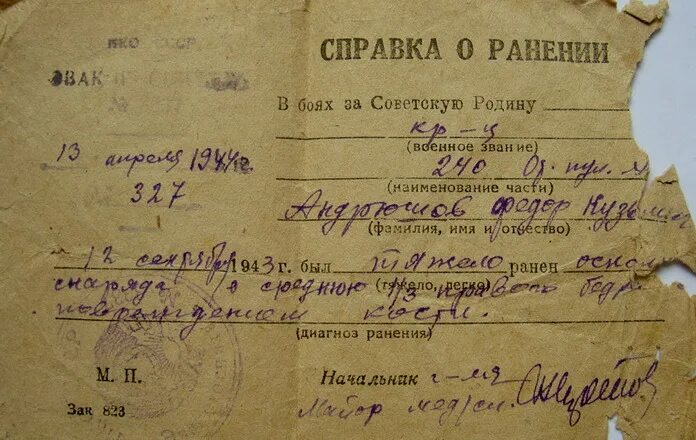 НКО СССР
СПРАВКА О РАНЕНИИ
ЭВАК
№
В боях за Советскую Родину
кр-ц
(военное звание)
13 апреля 1944 г.
240
(наименование части)
327
Андрюшов Федор Кузьмич
(фамилия, имя и отчество)
12 сентября 1943 г. был тяжело ранен оскол
(тяжело, легко)
снаряда в среднюю 1/3 правого бедра
повреждением кости.
(диагноз ранения)
М. П.
Начальник г-ля
Майор мед/сл.
Зак 823